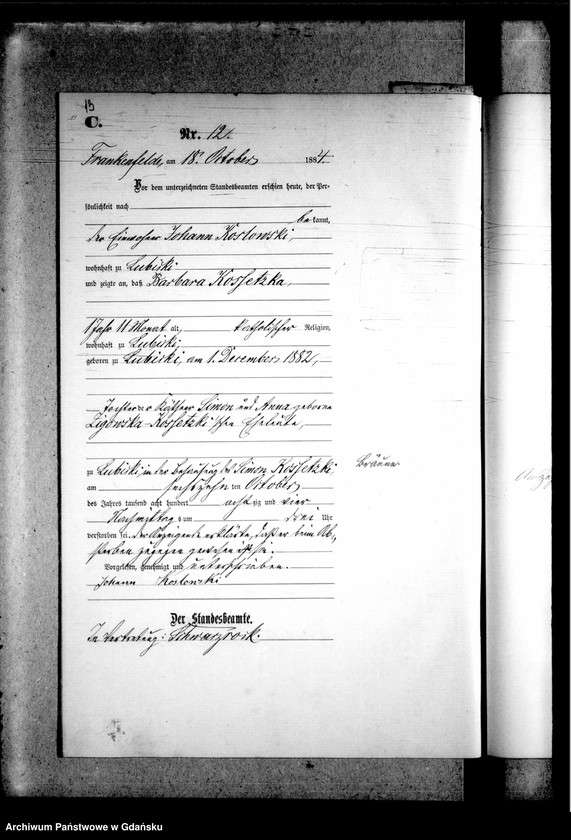 13
C.
Nr. 12.
Frankenfelde, am 18. October 1884.
Vor dem unterzeichneten Standesbeamten erschien heute, der Per-
sönlichkeit nach
bekannt,
der Einwohner Johann Koslowski,
wohnhaft zu Lubiski,
und zeigte an, daß Barbara Kossetzka,
1 Jahr 11 Monat alt, katholischer Religion,
wohnhaft zu Lubiski,
geboren zu Lubiski, am 1. December 1882,
Tochter der Käthner Simon und Anna geborne
Zigowska-Kossetzki'schen Eheleute,
zu Lubiski, in der Behausung des Simon Kossetzki
am sechszehn ten October
des Jahres tausend acht hundert achtzig und vier
Nachmittag um drei Uhr
verstorben sei. Der Anzeigende erklärte, daß er beim Ab-
sterben zugegen gewesen ist.
Vorgelesen, genehmigt und unterschrieben.
Johann Koslowski
Der Standesbeamte.
In Vertretung:
Bräune
Archiwum Państwowe w Gdańsku